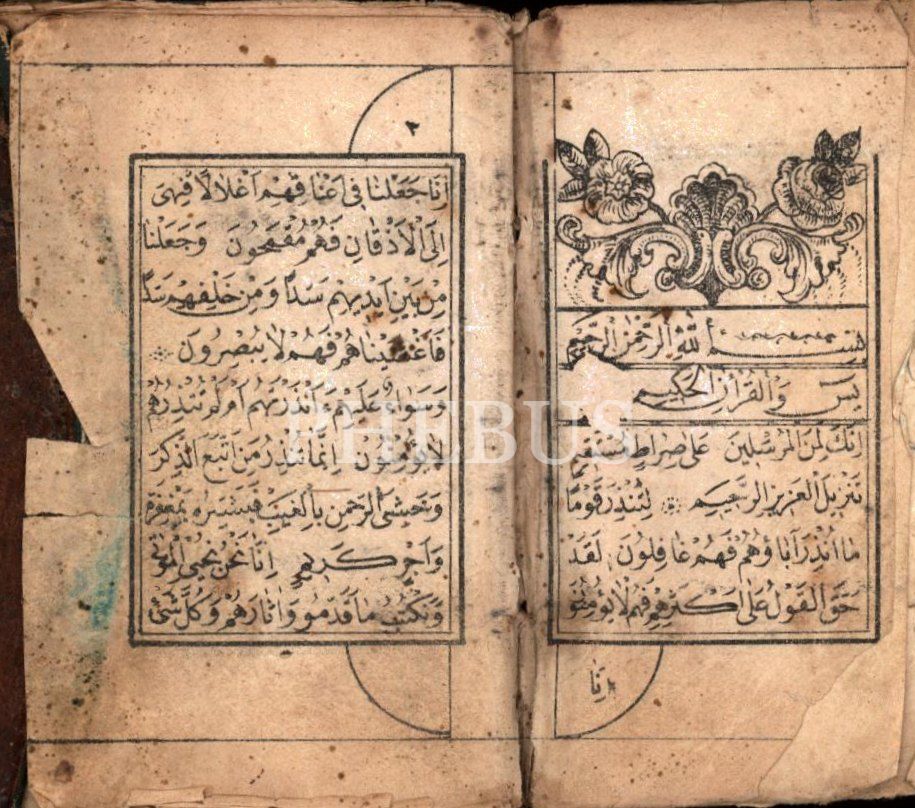 بِسْمِ اللّٰهِ الرَّحْمٰنِ الرَّحِيمِ
يٰسٓ وَالْقُرْاٰنِ الْحَكِيمِ
اِنَّكَ لَمِنَ الْمُرْسَلِينَ عَلٰى صِرَاطٍ مُسْتَقِيمٍ
تَنْزِيلَ الْعَزِيزِ الرَّحِيمِ لِتُنْذِرَ قَوْمًا
مَا اُنْذِرَ اٰبَاؤُهُمْ فَهُمْ غَافِلُونَ لَقَدْ
حَقَّ الْقَوْلُ عَلٰى اَكْثَرِهِمْ فَهُمْ لَا يُؤْمِنُو
اِنَّا
٣
اِنَّا جَعَلْنَا فِى اَعْنَاقِهِمْ اَغْلَالًا فَهِىَ
اِلَى الْاَذْقَانِ فَهُمْ مُقْمَحُونَ وَجَعَلْنَا
مِنْ بَيْنِ اَيْدِيهِمْ سَدًّا وَمِنْ خَلْفِهِمْ سَدًّا
فَاَغْشَيْنَاهُمْ فَهُمْ لَا يُبْصِرُونَ
وَسَوَاءٌ عَلَيْهِمْ ءَاَنْذَرْتَهُمْ اَمْ لَمْ تُنْذِرْهُمْ
لَا يُؤْمِنُونَ اِنَّمَا تُنْذِرُ مَنِ اتَّبَعَ الذِّكْرَ
وَخَشِىَ الرَّحْمٰنَ بِالْغَيْبِ فَبَشِّرْهُ بِمَغْفِرَةٍ
وَاَجْرٍ كَرِيمٍ اِنَّا نَحْنُ نُحْيِى الْمَوْتٰى
وَنَكْتُبُ مَا قَدَّمُوا وَاٰثَارَهُمْ وَكُلَّ شَىْءٍ
PHEBUS